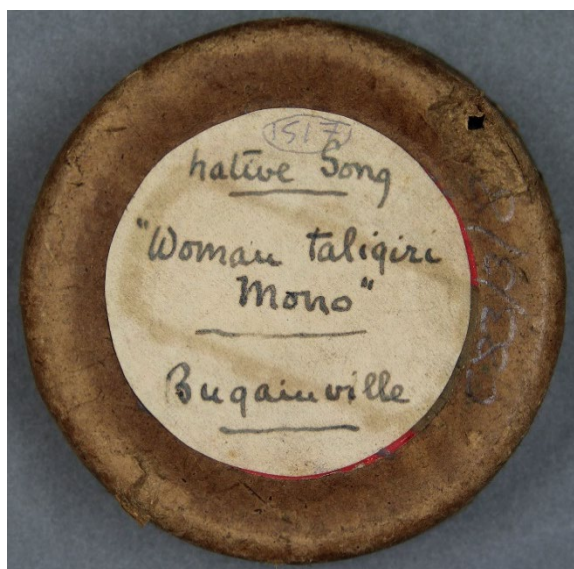 1517
native Song
"Woman taligiri
Mono"
Bugainville